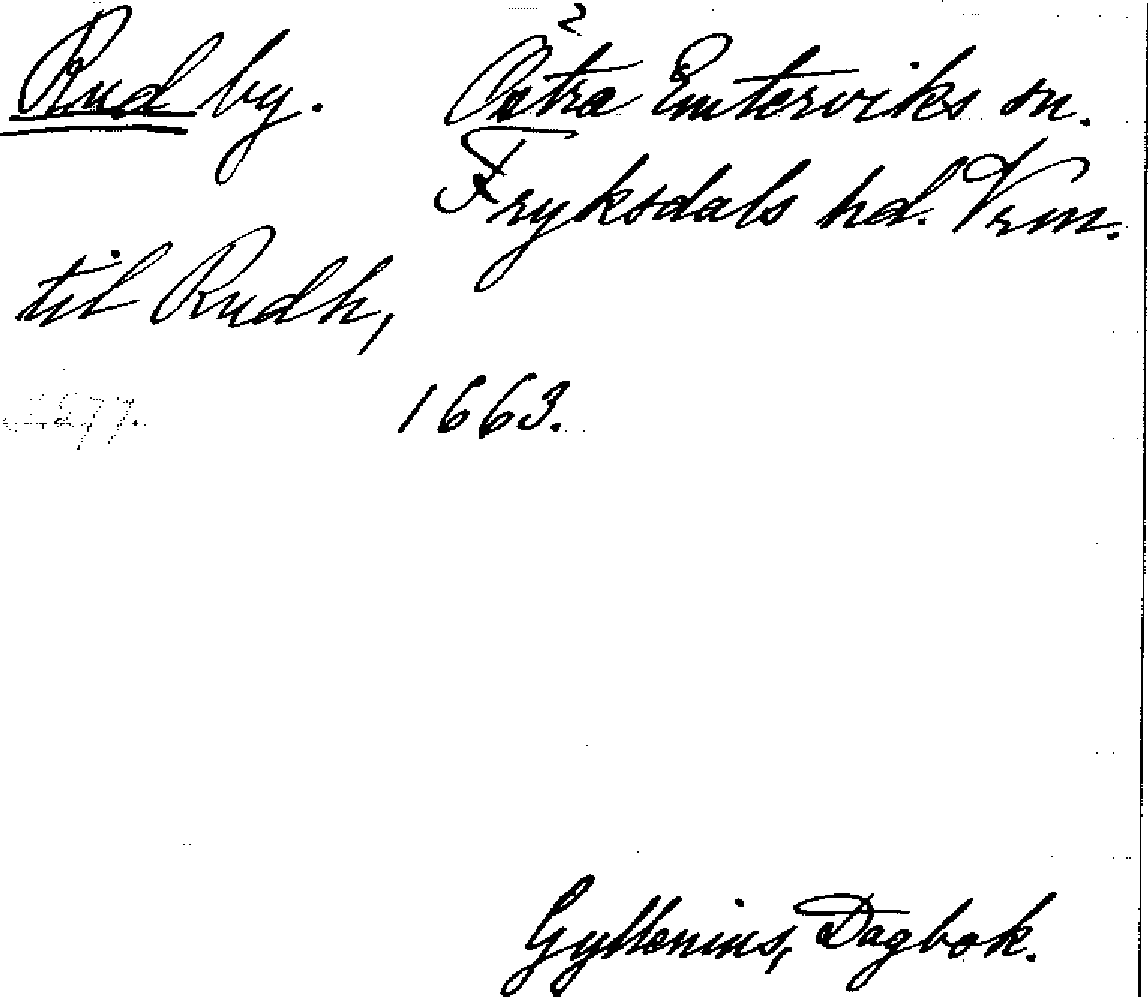 2
Rud by. Östra Emterviks sn.
Fryksdals hd. Vrm.
til Rudh,
1663.
Gyllenius, Dagbok.